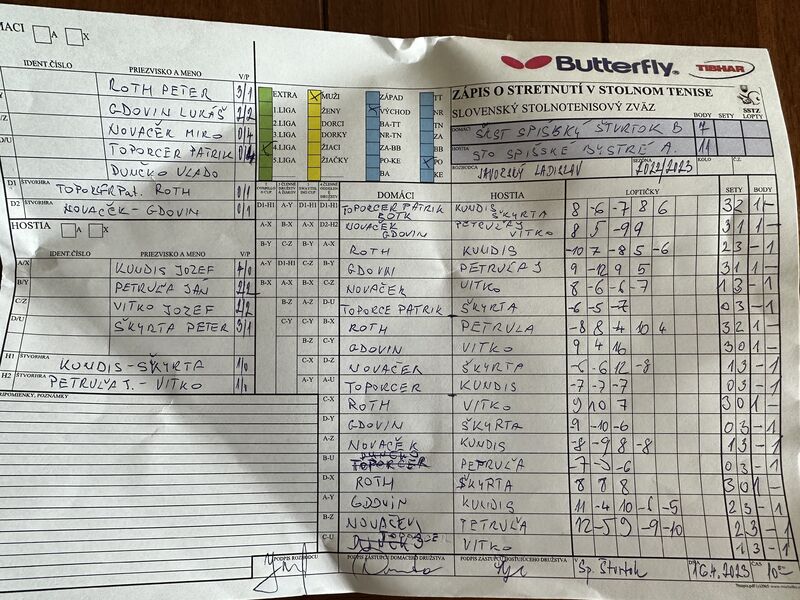 Butterfly
TIBHAR
ZÁPIS O STRETNUTÍ V STOLNOM TENISE
SLOVENSKÝ STOLNOTENISOVÝ ZVÄZ
SSTZ
BODY LOPTY
DOMÁCI ŠKST SPIŠSKÝ ŠTVRTOK B 7
HOSTIA STO SPIŠSKÉ BYSTRÉ A. 11
ROZHODCA JAVORSKÝ LADISLAV SEZÓNA 2022/2023 KOLO Č.Z.
A X
IDENT.ČÍSLO PRIEZVISKO A MENO V/P
ROTH PETER 3/1
GDOVIN LUKÁŠ 2/2
NOVAČEK MIRO 0/4
D/U TOPORCER PATRIK
DUNČKO VLADO
D1 ŠTVORHRA TOPORCER Pat. ROTH 1/0
D2 ŠTVORHRA NOVAČEK - GDOVIN 1/0
HOSTIA A X
IDENT.ČÍSLO PRIEZVISKO A MENO V/P
A/X KUNDIS JOZEF 4/0
B/Y PETRUĽA JAN 2/2
C/Z VITKO JOZEF 2/2
D/U ŠKYRTA PETER 3/1
H1 ŠTVORHRA KUNDIS - ŠKYRTA 1/0
H2 ŠTVORHRA PETRUĽA J. - VITKO 1/0
PRIPOMIENKY, POZNÁMKY
EXTRA MUŽI ZÁPAD TT
1.LIGA ŽENY VÝCHOD NR
2.LIGA DORCI BA-TT TN
3.LIGA DORKY NR-TN ZA
4.LIGA ŽIACI ZA-BB BB
5.LIGA ŽIAČKY PO-KE PO
BA KE
DOMÁCI HOSTIA LOPTIČKY SETY BODY
D1-H1 TOPORCER PATRIK ROTH KUNDIS ŠKYRTA 8 -6 -7 8 6 3 2 1 -
D2-H2 NOVAČEK GDOVIN PETRUĽA J VITKO 8 5 -9 9 3 1 1 -
A-X ROTH KUNDIS -10 7 -8 5 -6 2 3 - 1
B-Y GDOVIN PETRUĽA J 9 -12 9 5 3 1 1 -
C-Z NOVAČEK VITKO 8 -6 -6 -7 1 3 - 1
D-U TOPORCE PATRIK ŠKYRTA -6 -5 -7 0 3 - 1
B-X ROTH PETRULA -8 8 4 10 4 3 2 1 -
GDOVIN VITKO 9 4 16 3 0 1 -
D-Z NOVAČEK ŠKYRTA -6 -6 12 -8 1 3 - 1
A-U TOPORCER KUNDIS -7 -7 -7 0 3 - 1
C-X ROTH VITKO 9 10 7 3 0 1 -
D-Y GDOVIN ŠKYRTA -9 -10 -6 0 3 - 1
A-Z NOVAČEK KUNDIS -8 -9 8 -8 1 3 - 1
B-U DUNČKO TOPORCER PETRUĽA 0 3 - 1
D-X ROTH ŠKYRTA 8 8 8 3 0 1 -
A-Y GDOVIN KUNDIS 11 -4 10 -6 -5 2 3 - 1
B-Z NOVAČEK PETRUĽA 12 -5 9 -9 -10 2 3 - 1
C-U VITKO 1 3 - 1
PODPIS ROZHODCU PODPIS ZÁSTUPCU DOMÁCEHO DRUŽSTVA PODPIS ZÁSTUPCU HOSŤUJÚCEHO DRUŽSTVA V Sp. Štvrtok DŇA 16.4.2023 ČAS 10